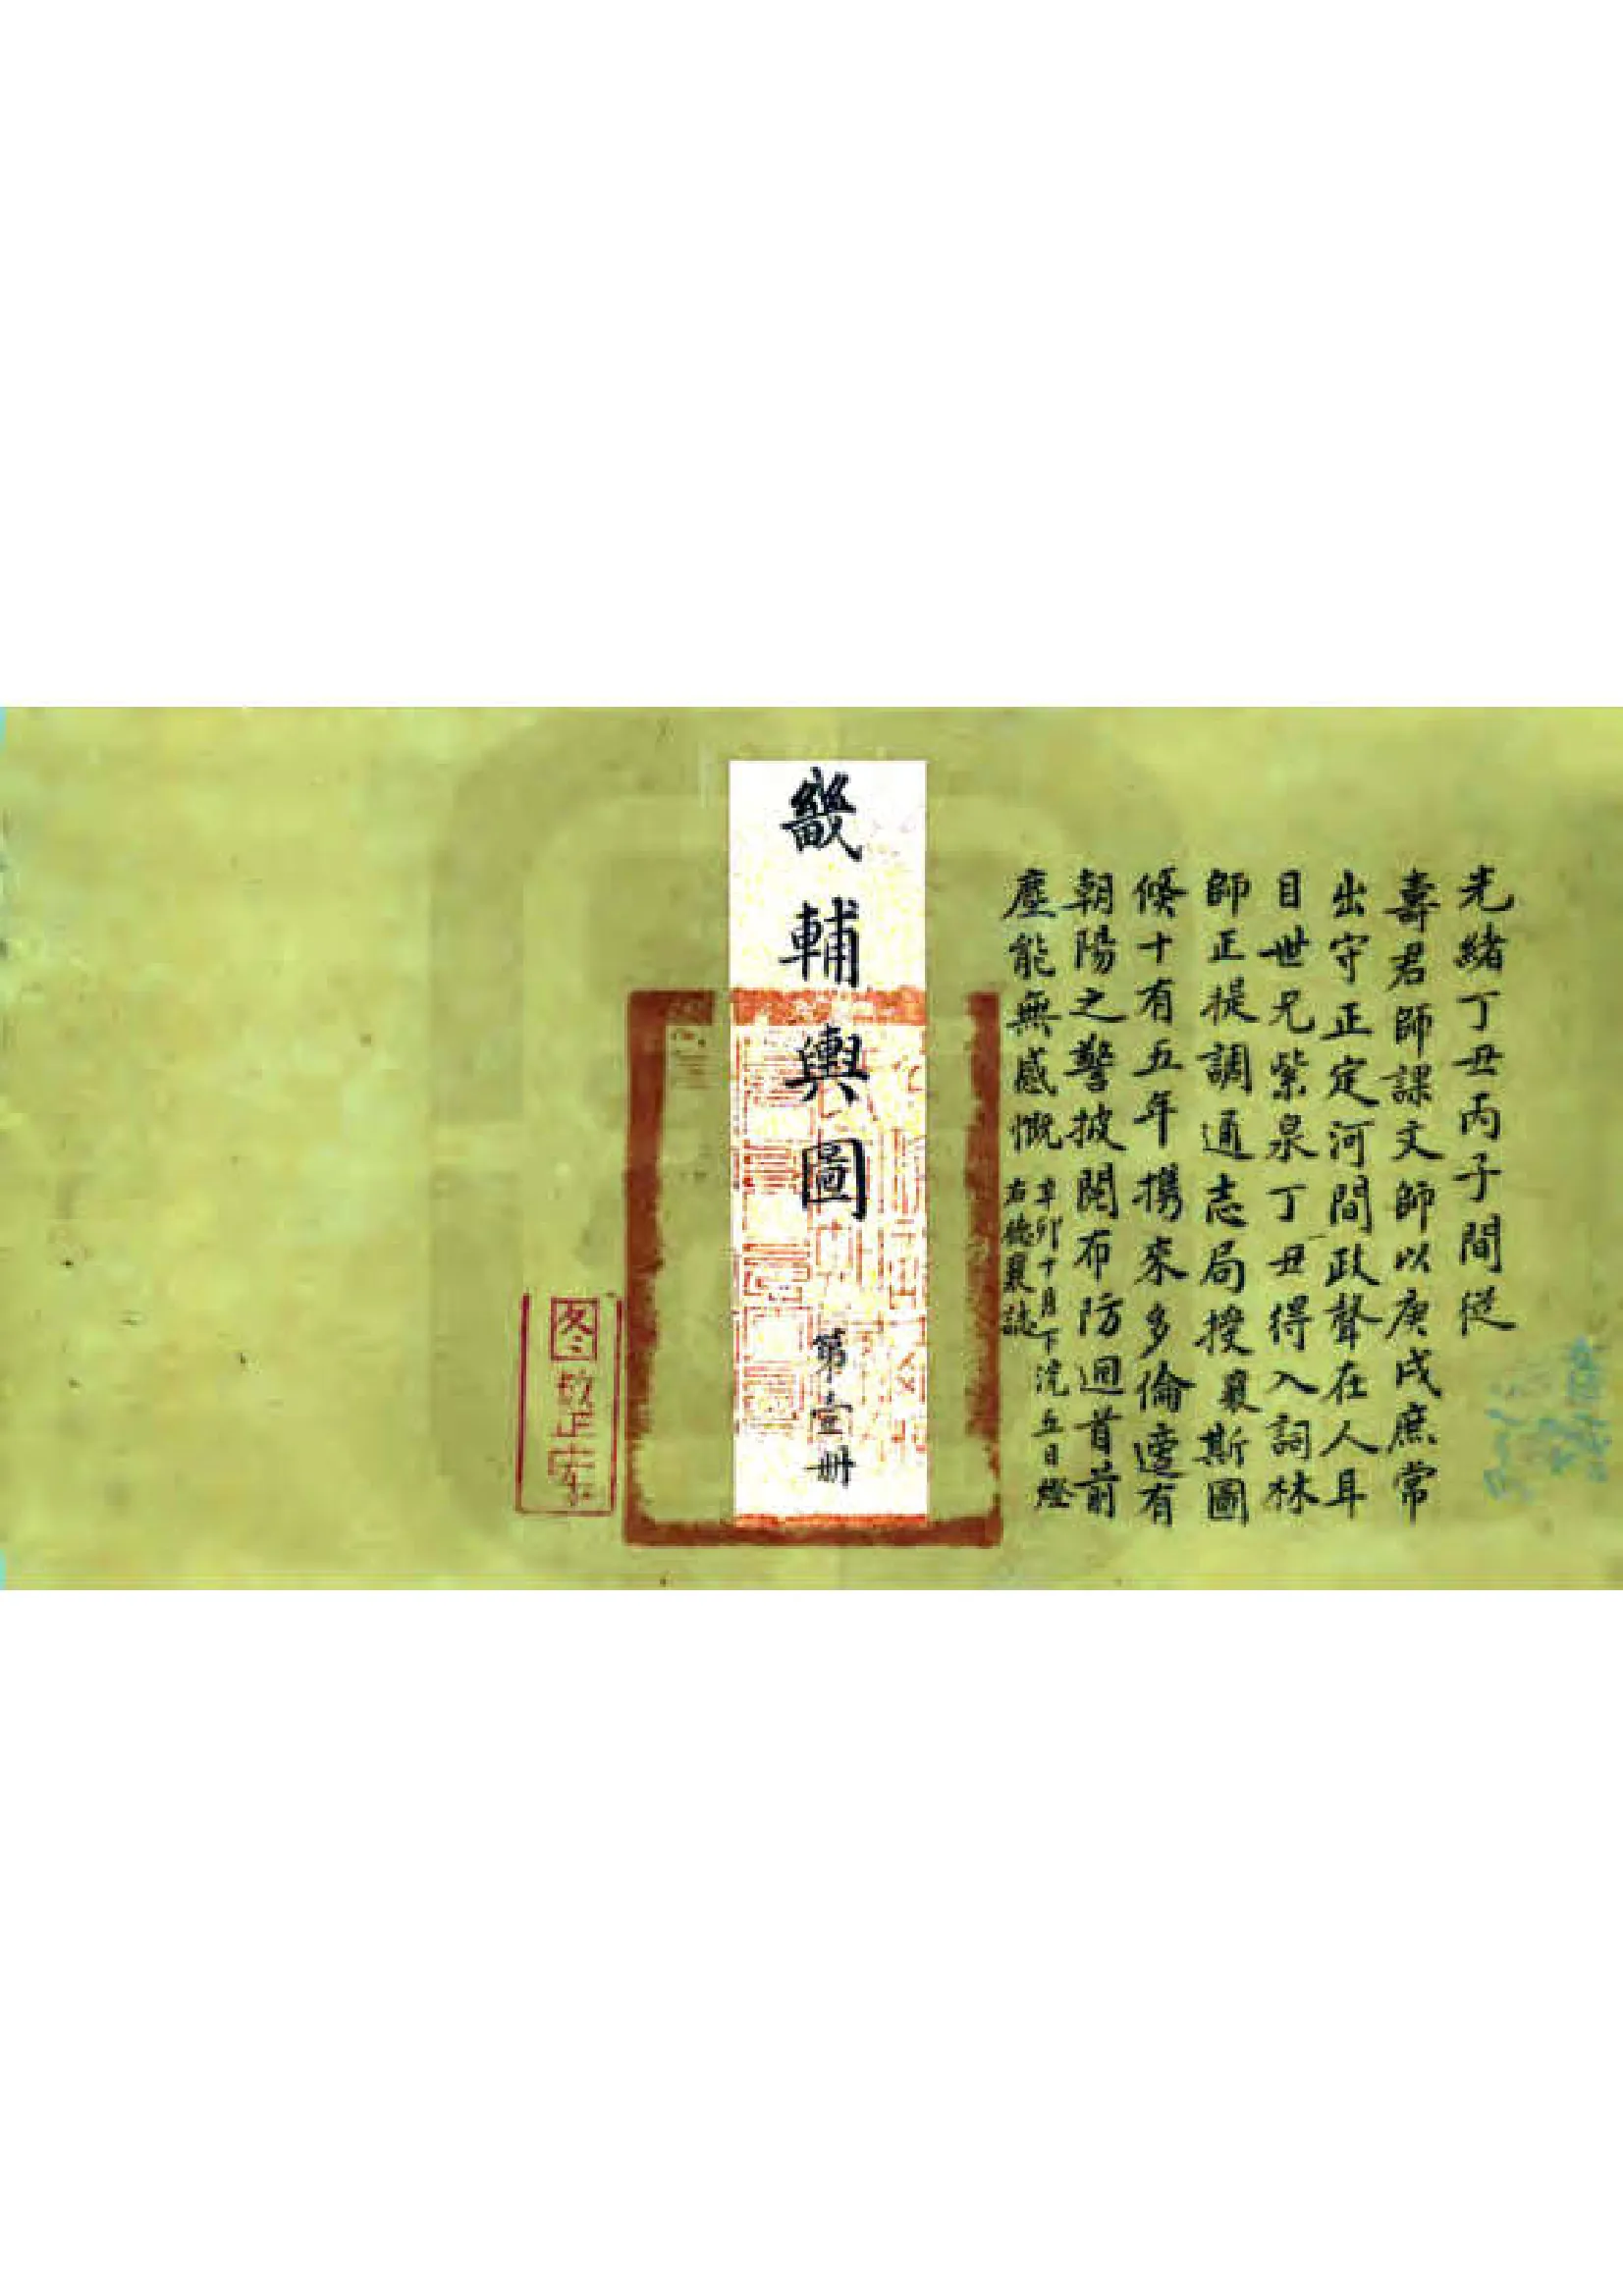 光緒丁丑丙子間從
壽君師課文師以庚戌庶常
出守正定河間政聲在人耳
目世兄紫泉丁丑得入詞林
師正提調通志局授襄斯圖
倏十有五年攜來多倫適有
朝陽之警披閱布防迴首前
塵能無感慨
辛卯十月下浣五日燈
右德襄誌
畿輔輿圖
第壹冊